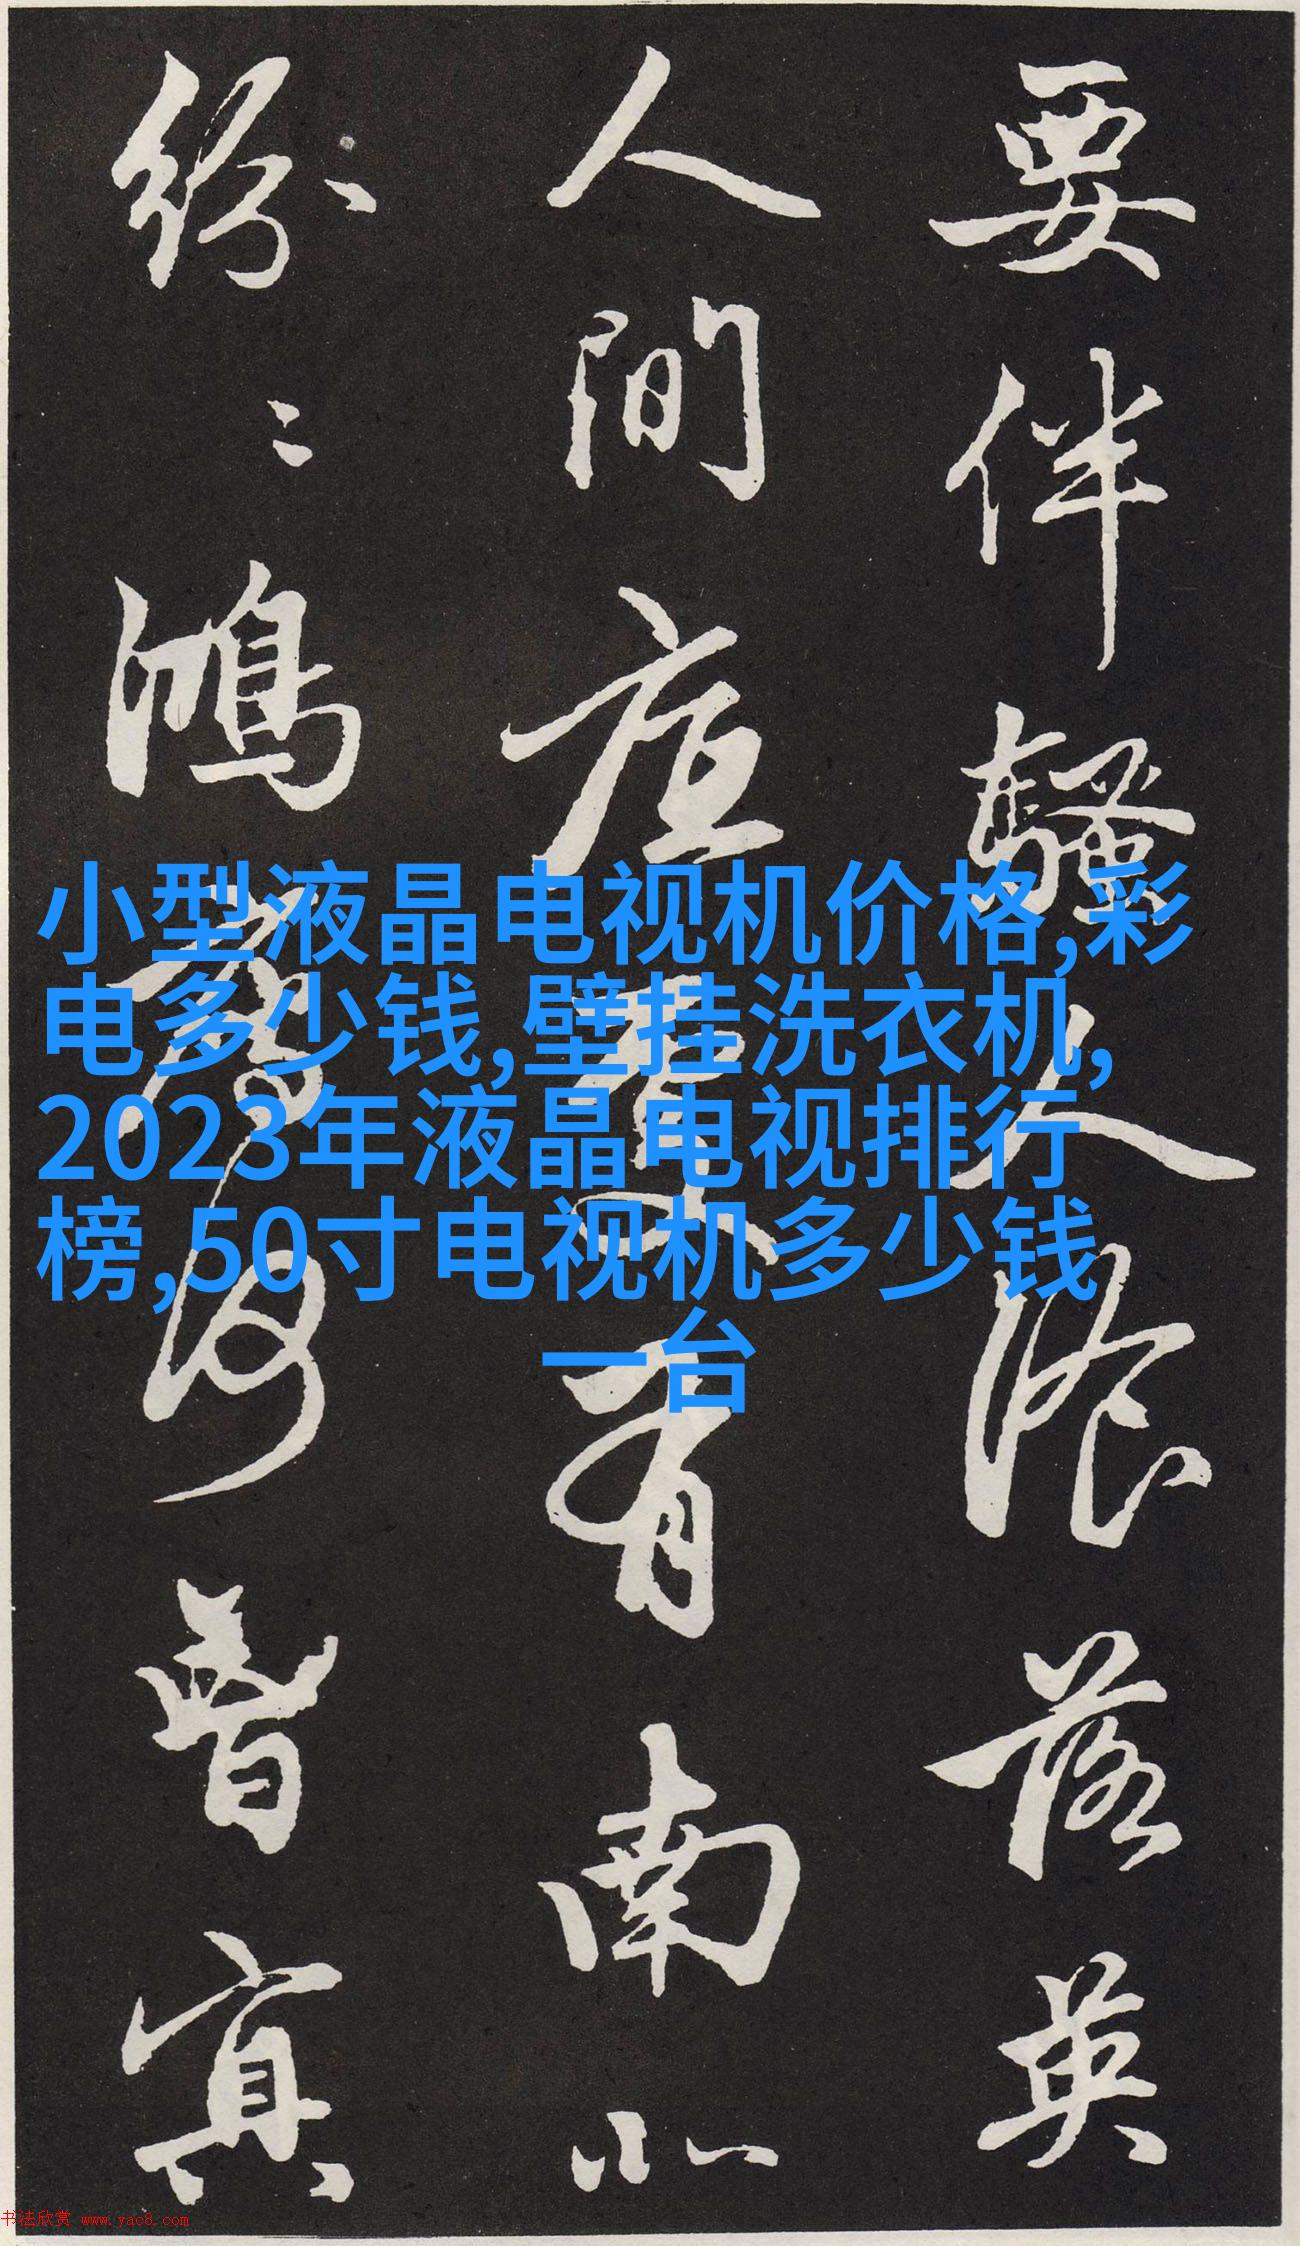 要伴騷人湌落英
人間
有南北
紛〻鴻
皆寘
小型液晶电视机价格,彩
电多少钱,壁挂洗衣机,
2023年液晶电视排行
榜,50寸电视机多少钱
一台
书法欣赏 www.yac8.com